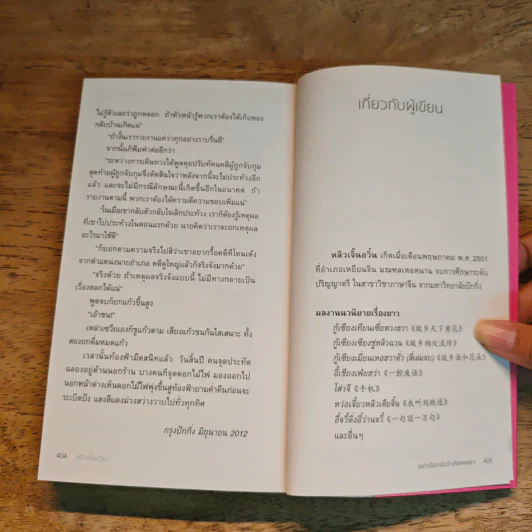 ไม่รู้ตัวเลยว่าถูกหลอก ถ้าหัวหน้ารู้พวกเราต้องได้เก็บของ
กลับบ้านเกิดแน่”
“ถ้างั้นเรารายงานแค่ว่าทุกอย่างราบรื่นดี”
จากนั้นก็พิมพ์ต่ออีกว่า
“ระหว่างการเดินทางได้พูดคุยปรับทัศนคติผู้ถูกจับกุม
สุดท้ายผู้ถูกจับกุมจึงตัดสินใจว่าหลังจากนี้จะไม่ประท้วงอีก
แล้ว และจะไม่มีกรณีลักษณะนี้เกิดขึ้นอีกในอนาคต ถ้า
รายงานตามนี้ พวกเราต้องได้ความดีความชอบเพิ่มแน่”
“ในเมื่อเขากลับตัวกลับใจเลิกประท้วง เราก็ต้องรู้เหตุผล
ที่เขาไปประท้วงในตอนแรกด้วย นายคิดว่าเราจะยกเหตุผล
อะไรมาใช้ดี”
“ก็บอกตามความจริงไปสิว่าเขาอยากรื้อคดีที่โดนเด้ง
จากตำแหน่งนายอำเภอ คดีดูใหญ่แล้วก็จริงจังมากด้วย”
“จริงด้วย ถ้าเหตุผลจริงจังแบบนี้ ไม่มีทางกลายเป็น
เรื่องตลกได้แน่”
พูดจบก็ยกแก้วขึ้นสูง
“เอ้าชน!”
เหล่าเซวียเองก็ชูแก้วตาม เสียงแก้วชนกันใสเสนาะ ทั้ง
สองยกดื่มหมดแก้ว
เวลานั้นท้องฟ้ามืดสนิทแล้ว วันสิ้นปี คนจุดประทัด
ฉลองอยู่ด้านนอกร้าน บางคนก็จุดดอกไม้ไฟ มองออกไป
นอกหน้าต่างเห็นดอกไม้ไฟพุ่งขึ้นสู่ท้องฟ้ายามค่ำคืนก่อนจะ
ระเบิดปัง แสงสีแดงม่วงสว่างวาบไปทั่วทุกทิศ
กรุงปักกิ่ง มิถุนายน 2012
404
หลิวเจิ้นอวิ๋น
เกี่ยวกับผู้เขียน
หลิวเจิ้นอวิ๋น เกิดเมื่อเดือนพฤษภาคม พ.ศ. 2501
ที่อำเภอเหยียนจิน มณฑลเหอหนาน จบการศึกษาระดับ
ปริญญาตรี ในสาขาวิชาภาษาจีน จากมหาวิทยาลัยปักกิ่ง
ผลงานนวนิยายเรื่องยาว
กู้เซียงเทียนเซี่ยหวงฮวา《故乡天下黄花》
กู้เซียงเซียงชู่หลิวฉวน《故乡相处流传》
กู้เซียงเมี่ยนเหอฮวาตั่ว (สี่เล่มจบ)《故乡面和花朵》
อี้เชียงเฟ่ยฮว่า《一腔废话》
โส่วจี《手机》
หว่อเจี้ยวหลิวเยวี่ยจิ้น《我叫刘跃进》
อี๋จวี้ติ่งอี๋ว่านจวี้《一句顶一万句》
และอื่นๆ
405